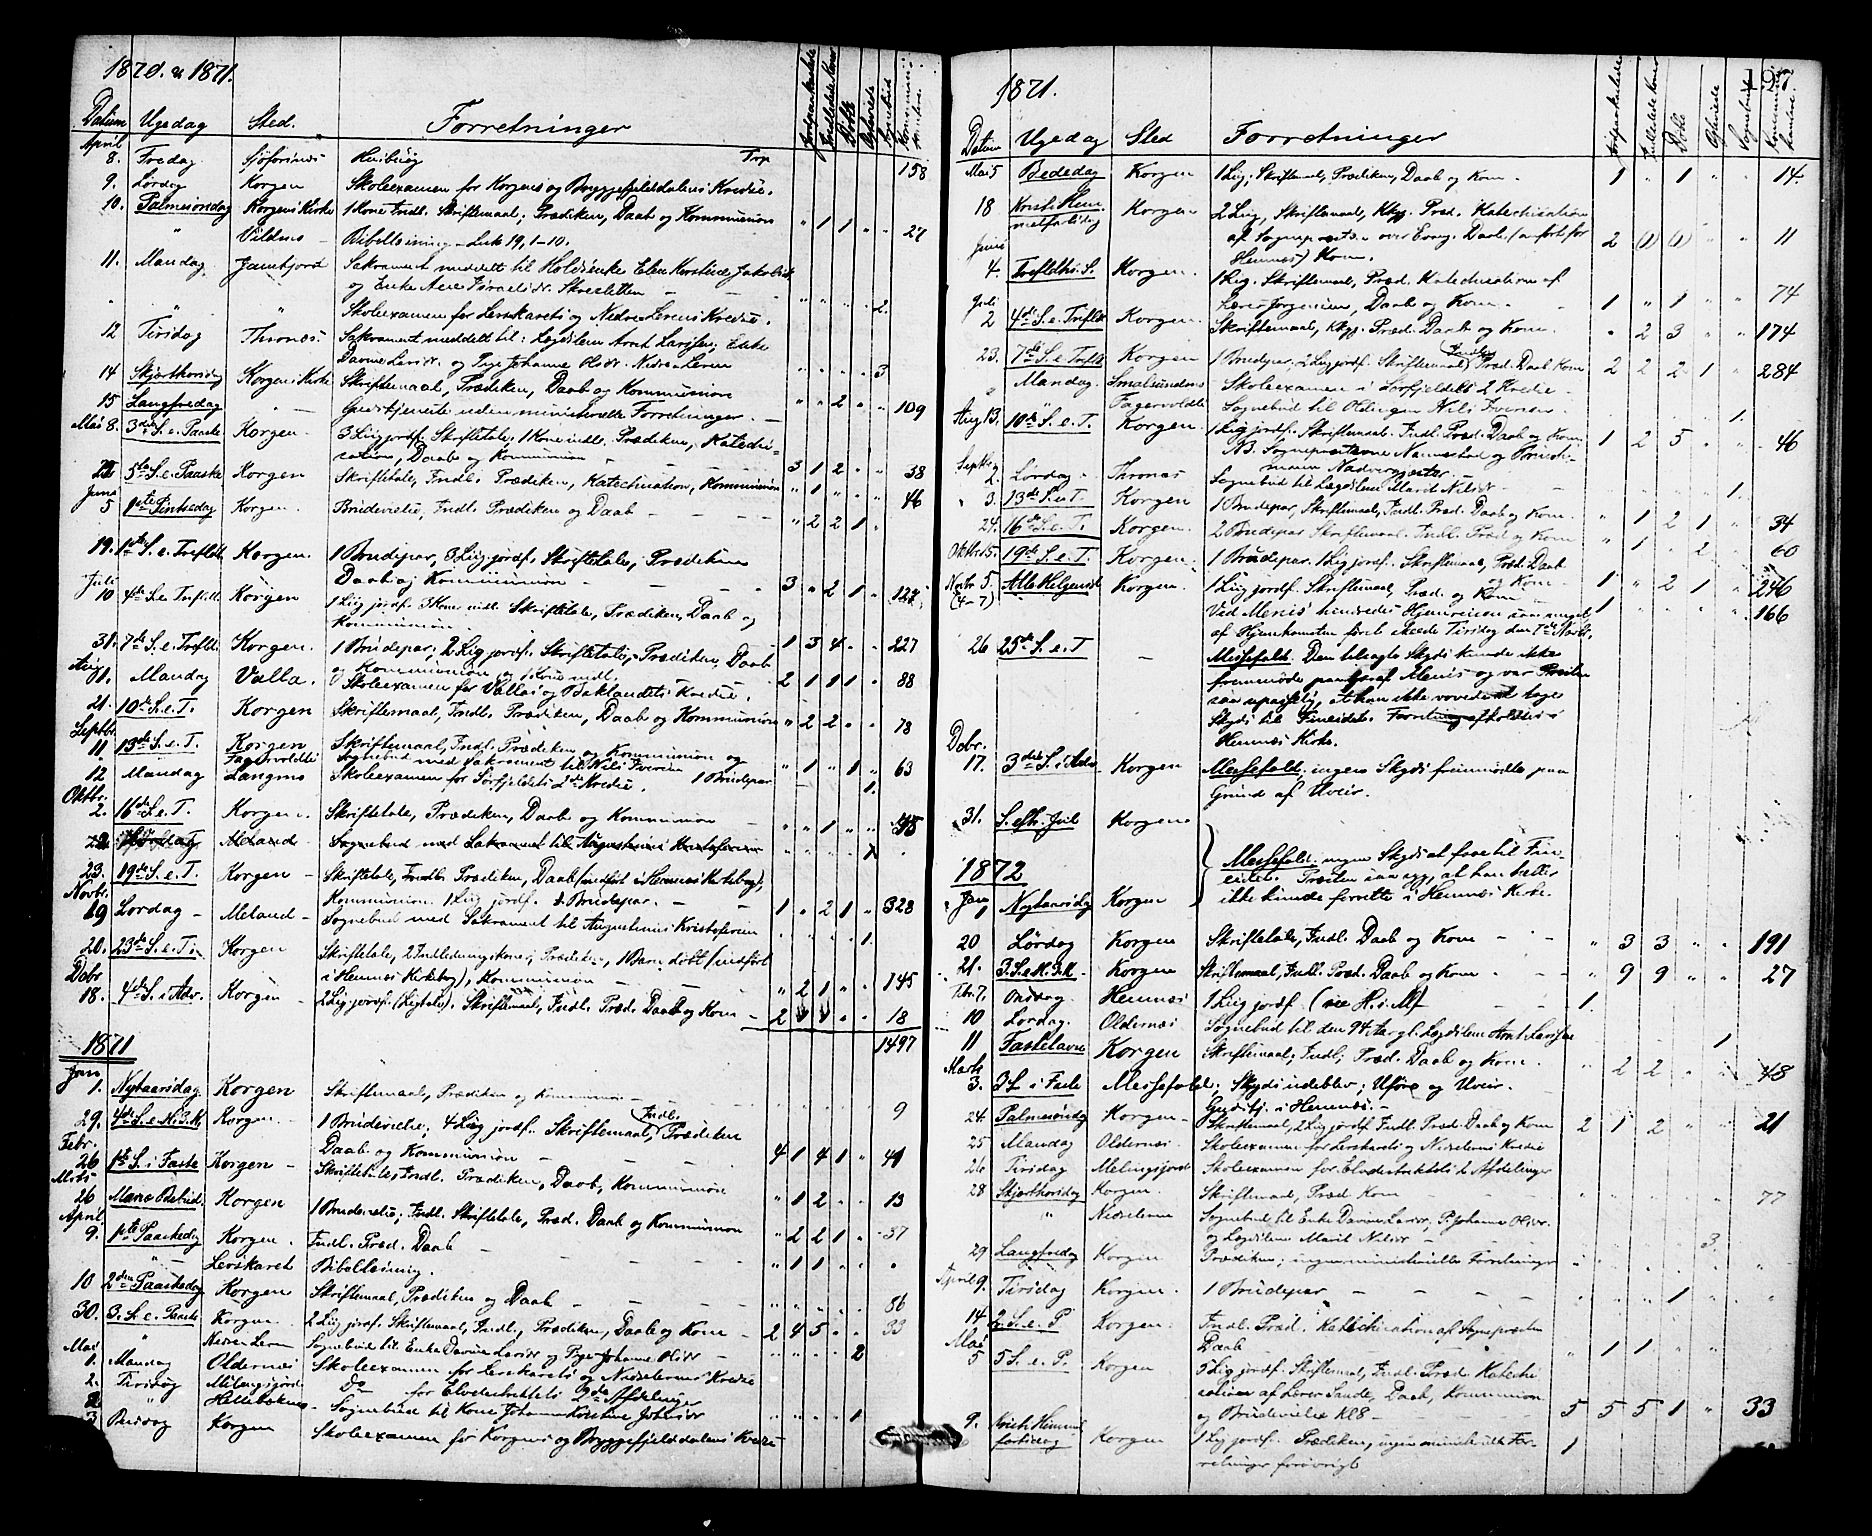 1870. & 1871.
Datum Ugedag Sted. Forretninger
April
8. Fredag Sjøforsnes Husbesøg 158
9. Lørdag Korgen Skoleexamen for Korgens og Bryggefjelddalens Kredse.
10. Palmesøndag Korgens Kirke 1 Kone Indl. Skriftemaal; Prædiken, Daab og Kommunion " 1 1 " " 27
" Bibellæsning – Luk 19, 1-10.
11. Mandag Jamtjord Sakrament meddelt til Enke Elen Kerstine Jakobsd.
og Enke Ane Israelsdr.
" " Skoleexamen for Leerskarets og Nedre Lerens Kredse. " " " " 2.
12 Tirsdag Thronæs Sakrament meddelt til: Lægdslem Arnt Larssen; Enke
Davine Larsdr. og Pige Johanne Olsdr. Nedre Leren " " " " 3
14 Skjærthorsdag Korgens Kirke Skriftemaal, Prædiken, Daab og Kommunion " " 2 " " 109
15 Langfredag – " – Gudstjeneste uden ministerielle Forretninger. –
Mai 8. 3die S. e. Paaske Korgen 3 Lig jordf. Skriftetale, 1 Kone indl. Prædiken, Kateche-
sation, Daab og Kommunion 3 1 2 " " 38
22 5te S. e. Paaske Korgen Skriftetale, Indl. Prædiken, Katechisation, Kommunion " 1 " " " 46
Juni
5 1ste Pintsedag Korgen. Brudevielse, Indl. Prædiken og Daab " 2 2 1 "
19. 1ste S. e. Trefold. Korgen. 1 Brudepar, 3 Lig jordf. Skriftetale, Prædiken
Daab og Kommunion 3 " 2 1 "
Juli
10 4de S. e. Trefold. Korgen 1 Lig jordf. 3 Koner indl. Skriftetale, Prædiken, Daab og
Kommunion. 1 3 4 " " 227
31. 7de S. e. Trefold. Korgen. 1 Brudepar, 2 Lig jordf. Skriftetale, Prædiken, Daab
og Kommunion og 1 Kone indl. 2 1 1 1 " 88
Aug.
1. Mandag Valla. Skoleexamen for Vallas og Baklandets Kredse.
21. 10de S. e. T. Korgen Skriftemaal, Indl. Prædiken, Daab og Kommunion " 2 2 " " 78
Septbr.
11 13de S. e. T. Korgen Skriftemaal, Indl. Prædiken og Kommunion og
Fagervoldli Sognebud med Sakrament til Nils Iversen " 1 " 1 " 63
12 Mandag Langmo Skoleexamen for Sørfjeldets 2de Kredse. 1 Brudepar 1.
Oktbr.
2. 16de S. e. T. Korgen. Skriftetale, Prædiken, Daab og Kommunion " " 1 " "
Meland Sognebud med Sakrament til Augustinus Kristofersen
23. 19de S. e. T. Korgen – Skriftetale, Indl. Prædiken, Daab (indført i Hemnes Kirkebog),
Kommunion. 1 Lig jordf. 1 Brudepar. – 1 " 2 1 " 328
Novbr.
19 Lørdag – Meland – Sognebud med Sakrament til Augustinus Kristofersen " " " " 1.
20. 23de S. e. T. Korgen Skriftetale, 2 Indledningskoner, Prædiken, 1 Barn døbt (indført
i Hemnes Kirkebog), Kommunion – " 2 1 " " 145
Debr.
18. 4de S. i Adv. Korgen – 2 Lig jordf. (Ligtale). Skriftemaal, Indl. Præd. Daab og Kom – 2 18
1497
1871
Jan
1. Nytaarsdag Korgen Skriftemaal, Prædiken og Kommunion 9
29. 4de S. e. H. 3. K. Korgen. 1 Brudevielse; 4 Lig jordf. Skriftemaal, Indl. Prædiken
Daab og Kommunion 4 1 4 1 " 41
Febr.
26 1ste S. i Faste Korgen – Skriftetale, Indl. Prædiken, Daab, Kommunion " 1 2 " " 13
Mts
26 Mariæ Bebud. Korgen 1 Brudevielse; Indl. Skriftetale, Præd. Daab og Kommunion " 2 2 1 " 37
April
9. 1ste Paaskedag Korgen. Indl. Præd. Daab – " 1 1 " " "
" Leirskaret Bibellæsning.
10 2den Paaskedag Korgen Skriftemaal, Prædiken og Daab – 36
30. 3. S. e. Paaske Korgen 2 Lig jordf. Skriftemaal, Indl., Prædiken, Daab og Kom – 2 4 5 " " 33
" Nedre Leren Sognebud til Enke Davine Larsdr og Pige Johanne Olsdr " " " " 2
Mai
1. Mandag Oldernæs Skoleexamen for Leerskarets og Nedrelerens Kredse
2. Tirsdag Do for Elvedistriktets 2de Afdelinger
" Sognebud til Kone Johanna Kirstine Johnsdr " " " " 1
3 Onsdag Korgen Skoleexamen for Korgens og Bryggefjelddalens Kredse
1871. 197
Datum Ugedag Sted Forretninger
Mai 5 Bededag Korgen 1 Lig; Skriftemaal, Prædiken, Daab og Kom – 1 " 1 " " 14.
18 Kristi Him-
melfartsdag Korgen 2 Lig, Skriftemaal, Præd. Katechisation
af Sognepræsten over Evang. Daab (anført for
Hemnes) Kom. 2 (1) (1) " " 11
Juni
4. Trefoldhs. S. Korgen. 1 Lig. Skriftemaal, Præd. Katechisation af
Lærer Jørgensen, Daab og Kom – 1 " 1 " " 74
Juli
2 4de S. e. Trefold Korgen. Skriftemaal, Præd. Daab og Kom. " 2 3 " " 174
23. 7de S. e. Trefold Korgen 1 Brudepar, 2 Lig jordf. Skriftemaal, Indled. Præd. Daab Kom 2 2 2 1 " 284
" Mandag. Skoleexamen i Sørfjeldets 2 Kredse –
Fagervoldli Sognebud til Oldingen Nils Iversen – 1.
Aug 13. 10de S. e. T. Korgen. 1 Lig jordf. Skriftemaal. Indl. Præd. Daab og Kom 1 2 5 " " 46
NB. Sognepræsterne
Septbr
2. Lørdag – Thronæs Sognebud til Lægdslem Marit Nilsdr – 1.
" 3. 13de S. e. T. Korgen 1 Brudepar, Skriftemaal, Indl. Præd. Daab og Kom " 1 2 1 " 34
24. 16de S. e. T. Korgen. 2 Brudepar Skriftemaal. Indl. Præd og Kom " 1 " 2 " 60
Oktbr. 15. 19de S. e. T. Korgen. 1 Brudepar. 1 Lig jordf. Skriftemaal. Præd. Daab
og Kom – 1 " 2 1 " 246
Novbr. 5 Alle Helgensd. Korgen. 1 Lig jordf. Skriftemaal, Præd. og Kom – 1 " " " " 166
(4–7) Ved Menis hindredes Hjemreisen
af Hjemkomsten først skeede Tirsdag den 7de Novbr.
26 25de S. e. T – Messefald. Den tilsagte Skyds kunde ikke
fremmøde paa Grund af Menis og var Præsten
saa upasselig, at han ikke vovede at tage
Skyds til Fineidet. Forretning afholdtes i
Hemnes Kirke.
Debr.
17. 3die S. i Adv. Korgen Messefald, ingen Skyds fremmødte paa
Grund af Uveir.
31. S. efter Jul Korgen
Messefald. ingen Skyds at faae til Fin-
eidet. Præsten saa syg, at han heller
ikke kunde forrette i Hemnes Kirke.
1872
Jan
1 Nytaarsdag Korgen
20 Lørdag Korgen Skriftetale, Indl. Daab og Kom – " 3 3 " " 191
21. 3. S. e. H. 3 K. Korgen Skriftemaal, Indl. Præd. Daab og Kom – " 9 9 " " 27
Fbr. 7. Onsdag. Hemnæs 1 Lig jordf. (see H. i M) – 1.
10 Lørdag. Oldernæs Sognebud til den 94 Aar gl. Lægdslem Arnt Larssen 1
11 Fastelavn Korgen Skriftemaal, Indl; Præd. Daab og Kom " 2 2 " " 48
Marts
3. 3 S. i Faste Messefald; Skyds udeblev; Uføre og Uveir. –
Gudstj. i Hemnes. –
24. Palmesøndag Korgen – Skriftemaal, 2 Lig jordf. Indl. Præd. Daab og Kom 2 1 2 " " 21
25 Mandag Oldernæs Skoleexamen for Leerskarets og Nedrelerens Kredse
26 Tirsdag Skoleexamen for Elvedistriktets 2 Afdelinger
28 Skjærthorsdag Korgen. Skriftemaal, Præd Kom 77
" Nedreleren Sognebud til Enke Davine Larsdr, P. Johanne Olsdr.
og Lægdslem Marit Nilsdr – 3
29 Langfredag Korgen Prædiken, ingen ministerielle Forretninger
April 9. Tirsdag Korgen. 1 Brudepar 1
14 2. S. e. P Korgen. Indl. Præd. Katechisation af Sognepræsten
Daab " 1 1 " "
Mai
5 5 S. e. P. Korgen 5 Lig jordf. Skriftemaal, Indl. Præd. Kateche-
sation af Lærer Sande, Daab, Kommunion
og Brudevielse Kl 8 – 5 5 5 1 " 33
9. Kristi Himmel-
fartsdag Korgen 1 Lig jordf. Prædiken, ingen ministerielle For-
retninger forøvrigt 1